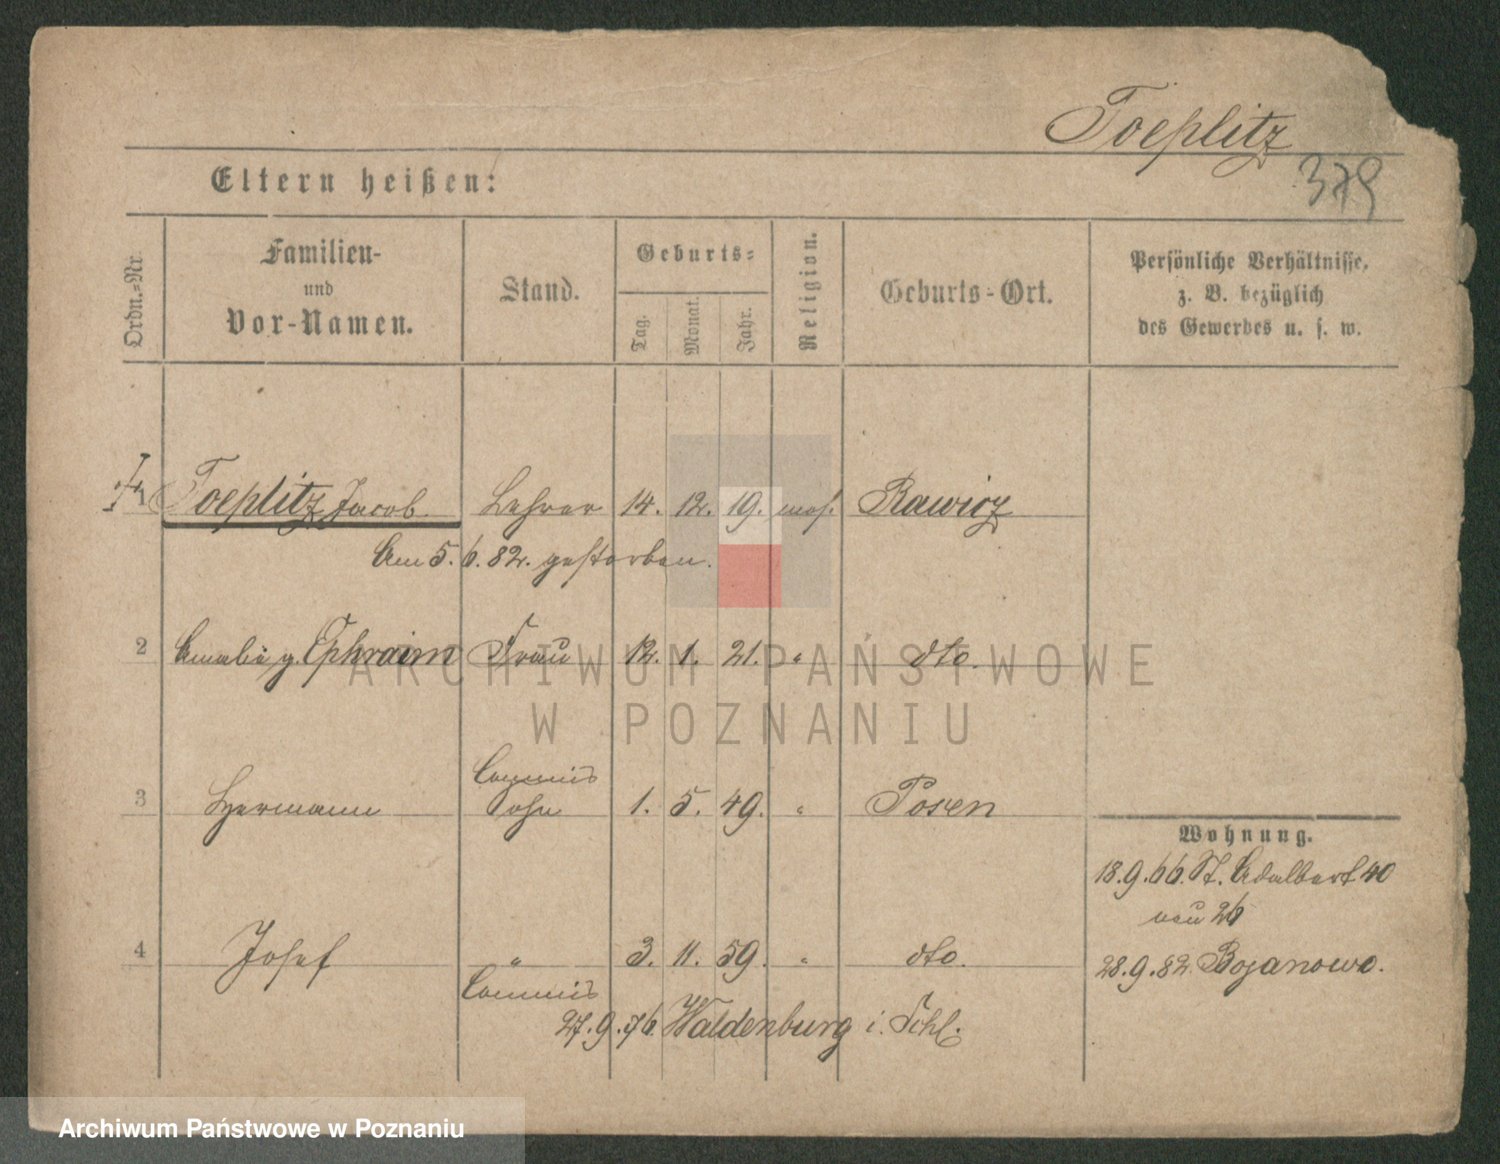 Toeplitz
379
Eltern heißen:
Ordn.-Nr.
Familien-
und
Vor-Namen.
Stand.
Geburts-
Tag.
Monat.
Jahr.
Religion.
Geburts-Ort.
Persönliche Verhältnisse,
z. B. bezüglich
des Gewerbes u. s. w.
1 Toeplitz Jacob Lehrer 14. 12. 19. mos. Rawicz
Am 5. 6. 82. gestorben.
2 Amalie g. Ephraim Frau 12. 1. 21. " dto.
ARCHIWUM PAŃSTWOWE
W POZNANIU
Commis
3 Hermann Sohn 1. 5. 49. " Posen
Wohnung.
18.9.66. St. Adalbert 40
neu 26
4 Josef " 3. 11. 59. " dto.
28.9.82 Bojanowo.
Commis
27.9.76. Waldenburg i. Schl.
Archiwum Państwowe w Poznaniu